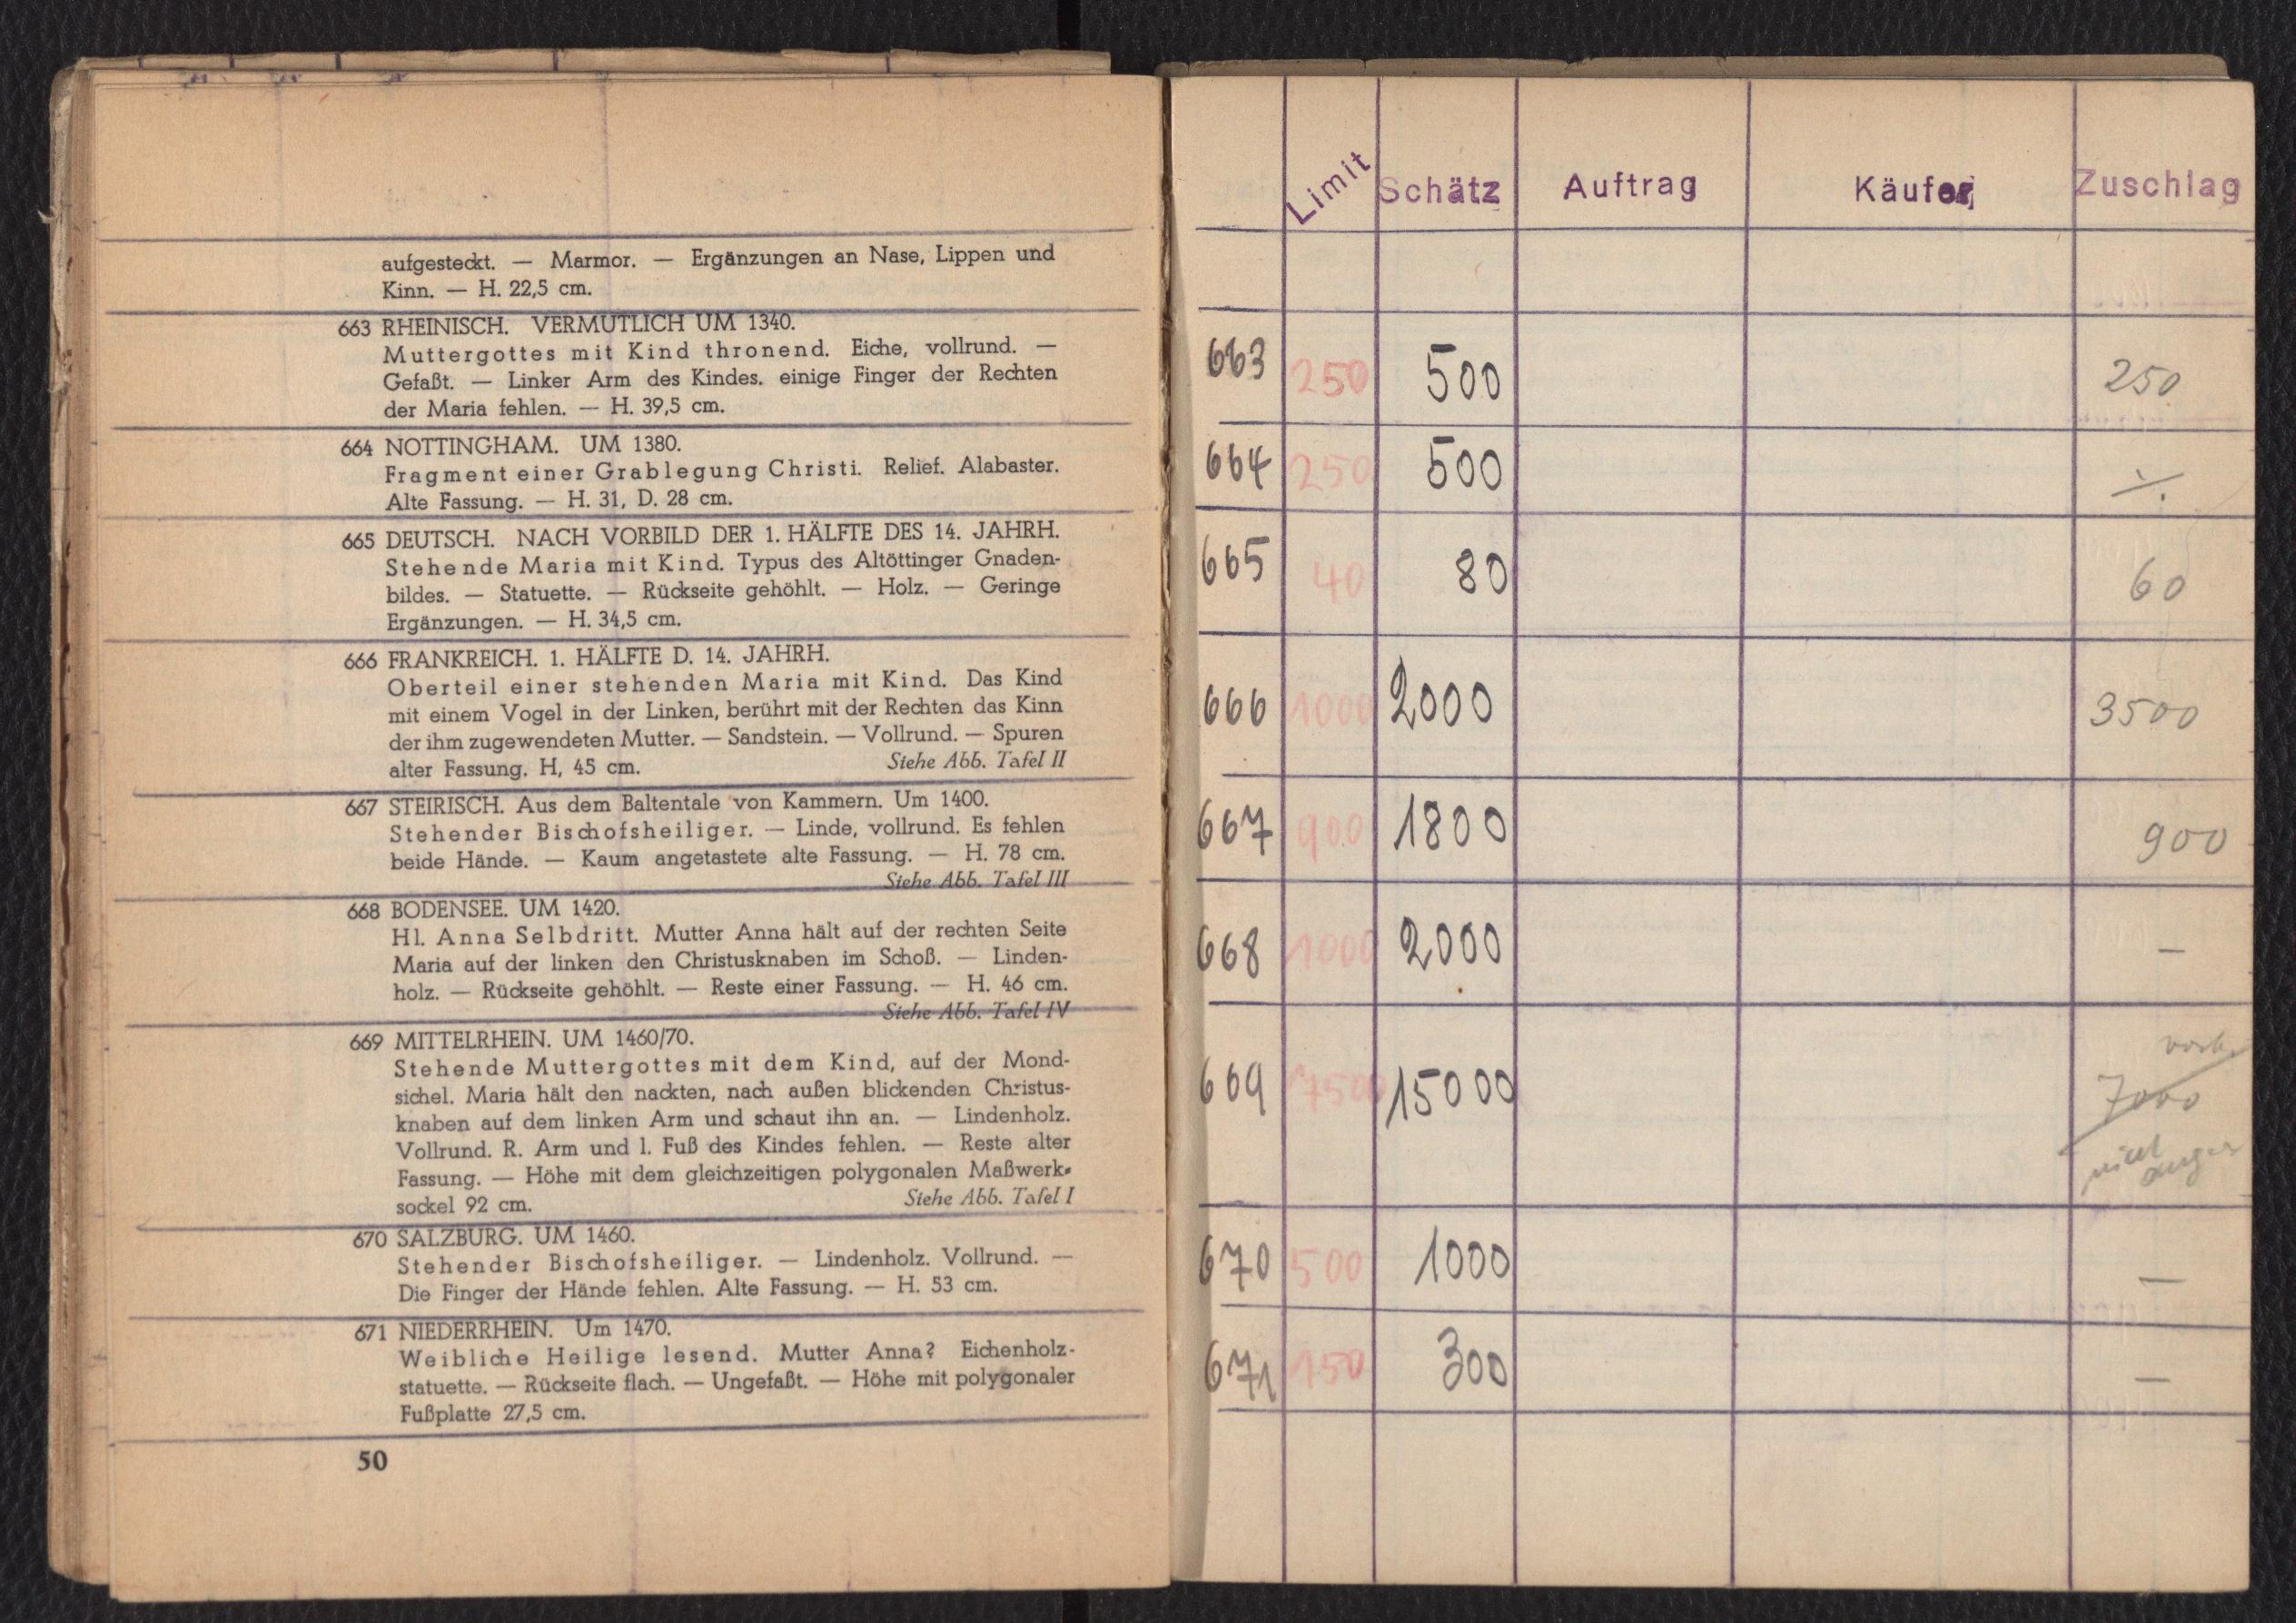 aufgesteckt. — Marmor. — Ergänzungen an Nase, Lippen und
Kinn. — H. 22,5 cm.
663 RHEINISCH. VERMUTLICH UM 1340.
Muttergottes mit Kind thronend. Eiche, vollrund. —
Gefaßt. — Linker Arm des Kindes. einige Finger der Rechten
der Maria fehlen. — H. 39,5 cm.
664 NOTTINGHAM. UM 1380.
Fragment einer Grablegung Christi. Relief. Alabaster.
Alte Fassung. — H. 31, D. 28 cm.
665 DEUTSCH. NACH VORBILD DER 1. HÄLFTE DES 14. JAHRH.
Stehende Maria mit Kind. Typus des Altöttinger Gnaden-
bildes. — Statuette. — Rückseite gehöhlt. — Holz. — Geringe
Ergänzungen. — H. 34,5 cm.
666 FRANKREICH. 1. HÄLFTE D. 14. JAHRH.
Oberteil einer stehenden Maria mit Kind. Das Kind
mit einem Vogel in der Linken, berührt mit der Rechten das Kinn
der ihm zugewendeten Mutter. — Sandstein. — Vollrund. — Spuren
alter Fassung. H, 45 cm. Siehe Abb. Tafel II
667 STEIRISCH. Aus dem Baltentale von Kammern. Um 1400.
Stehender Bischofsheiliger. — Linde, vollrund. Es fehlen
beide Hände. — Kaum angetastete alte Fassung. — H. 78 cm.
Siehe Abb. Tafel III
668 BODENSEE. UM 1420.
Hl. Anna Selbdritt. Mutter Anna hält auf der rechten Seite
Maria auf der linken den Christusknaben im Schoß. — Linden-
holz. — Rückseite gehöhlt. — Reste einer Fassung. — H. 46 cm.
Siehe Abb. Tafel IV
669 MITTELRHEIN. UM 1460/70.
Stehende Muttergottes mit dem Kind, auf der Mond-
sichel. Maria hält den nackten, nach außen blickenden Christus-
knaben auf dem linken Arm und schaut ihn an. — Lindenholz.
Vollrund. R. Arm und l. Fuß des Kindes fehlen. — Reste alter
Fassung. — Höhe mit dem gleichzeitigen polygonalen Maßwerk-
sockel 92 cm. Siehe Abb. Tafel I
670 SALZBURG. UM 1460.
Stehender Bischofsheiliger. — Lindenholz. Vollrund. —
Die Finger der Hände fehlen. Alte Fassung. — H. 53 cm.
671 NIEDERRHEIN. Um 1470.
Weibliche Heilige lesend. Mutter Anna? Eichenholz-
statuette. — Rückseite flach. — Ungefaßt. — Höhe mit polygonaler
Fußplatte 27,5 cm.
50
Limit Schätz Auftrag Käufer Zuschlag
663 250 500 250
664 250 500 ·/.
665 40 80 60
666 1000 2000 3500
667 900 1800 900
668 1000 2000 —
669 7500 15000 7000
670 500 1000 —
671 150 300 —